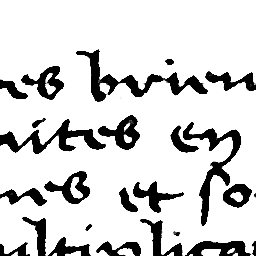 es brien
uites en
nes et so
ultiplica